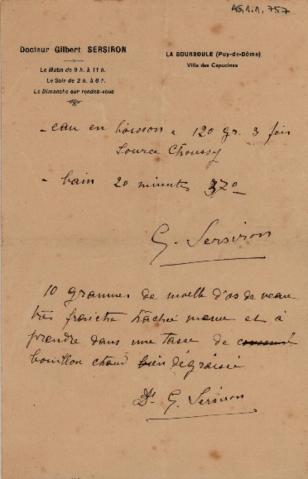 AS.1.1.757
Docteur Gilbert SERSIRON
Le Matin de 9 h. à 11 h.
Le Soir de 2 h. à 6 h.
Le Dimanche sur rendez-vous
LA BOURBOULE (Puy-de-Dôme)
Villa des Capucines
- eau en boisson 120 gr. 3 fois
Source Choussy
- bain 20 minutes 37°
G. Sersiron
10 grammes de moelle d'os de veau
très fraiche hachée menu et à
prendre dans une tasse de
bouillon chaud bien dégraissé
Dr G. Sersiron